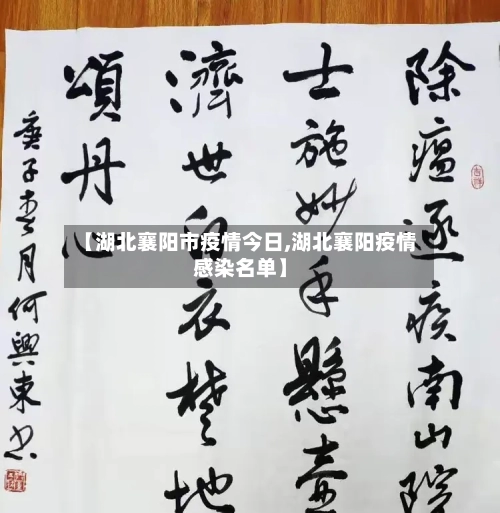 除瘟逐疾南山院
士施妙手懸壺
濟世白衣楚地
頌丹心
庚子春月何興東书
【湖北襄阳市疫情今日,湖北襄阳疫情
感染名单】